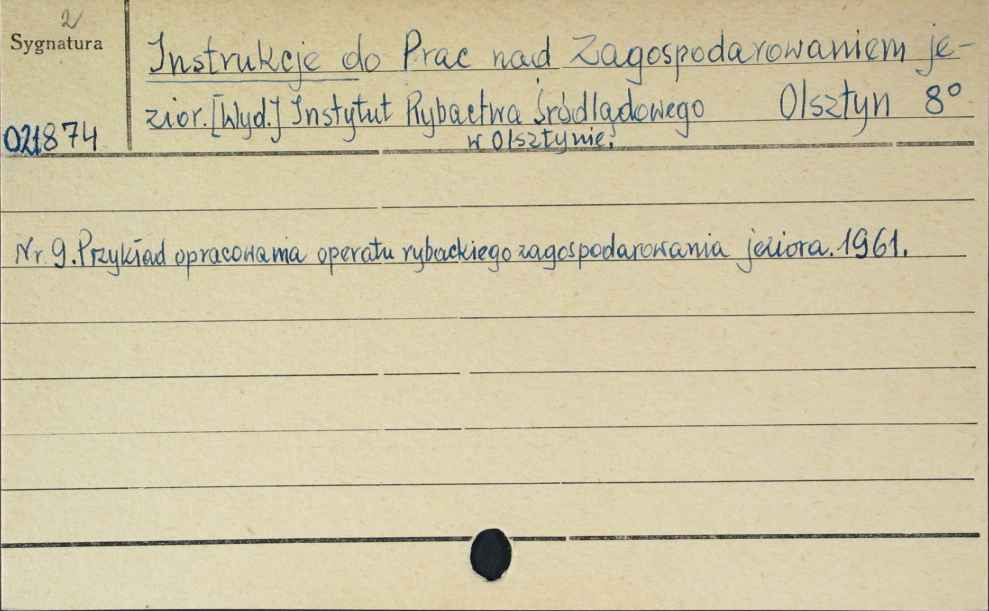 2
Sygnatura
Instrukcje do Prac nad Zagospodarowaniem je-
zior. [Wyd.] Instytut Rybactwa Śródlądowego Olsztyn 8°
w Olsztynie.
021874
Nr 9. Przykład opracowania operatu rybackiego zagospodarowania jeziora. 1961.